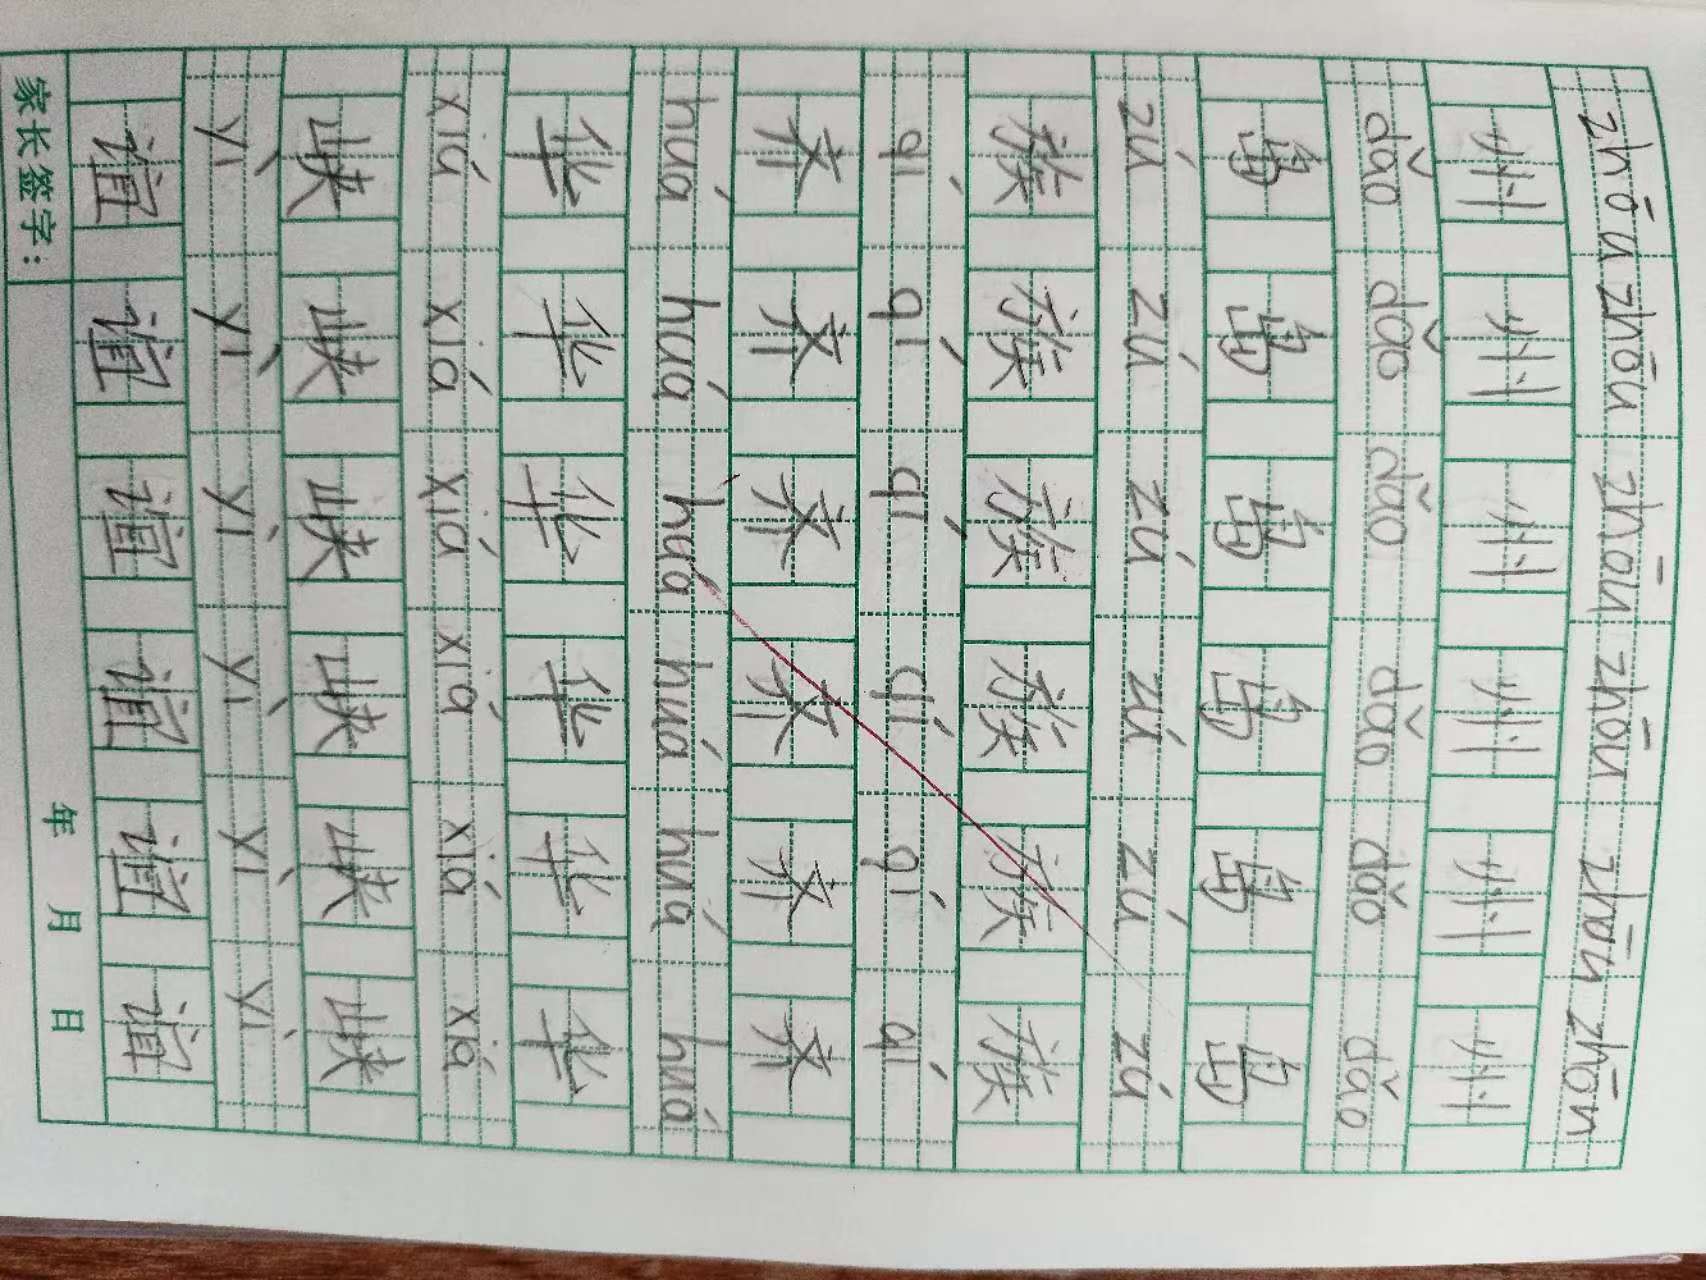 zhōu zhōu zhōu zhōu zhōu zhōu
州 州 州 州 州 州
dǎo dǎo dǎo dǎo dǎo dǎo
岛 岛 岛 岛 岛 岛
zú zú zú zú zú zú
族 族 族 族 族 族
qí qí qí qí qí qí
齐 齐 齐 齐 齐 齐
huá huá huá huá huá huá
华 华 华 华 华 华
xiá xiá xiá xiá xiá xiá
峡 峡 峡 峡 峡 峡
yì yì yì yì yì yì
谊 谊 谊 谊 谊 谊
家长签字: 年 月 日